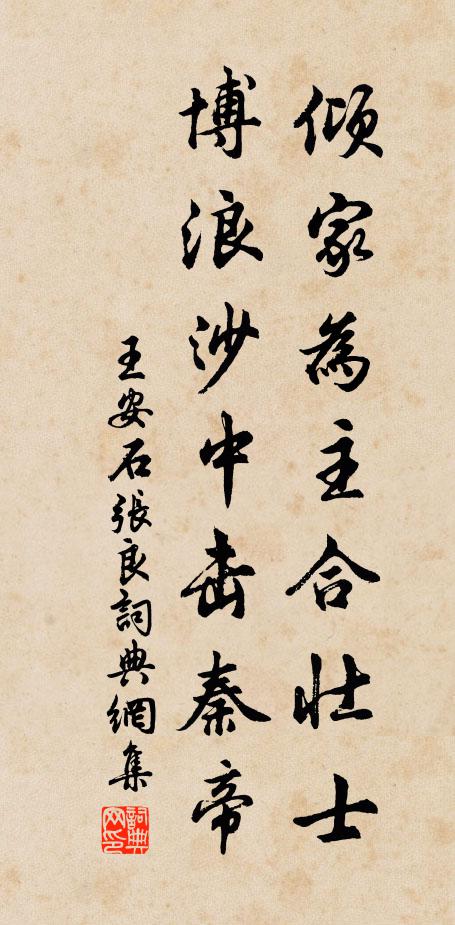 傾家為主合壯士
博浪沙中击秦帝
王安石張良詞典網集
詞典網印